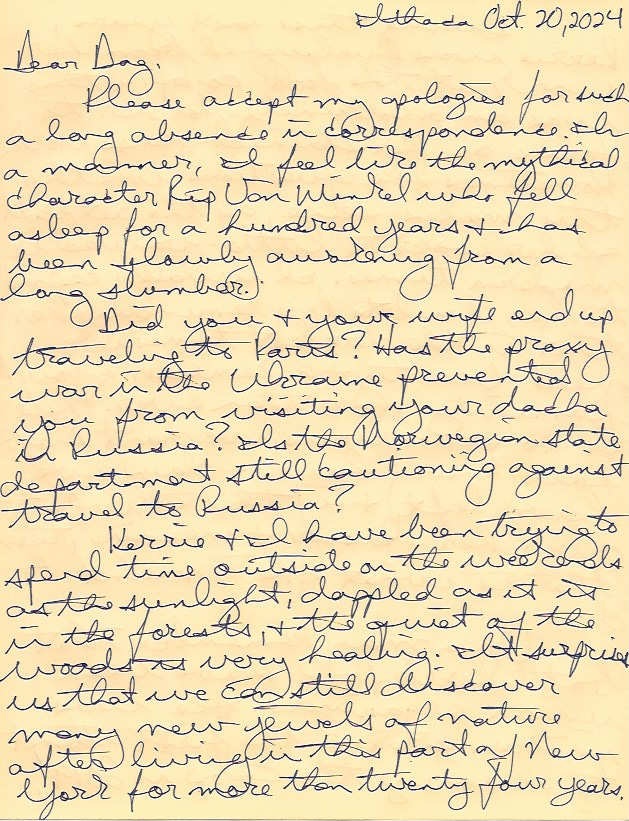 Ithaca Oct. 20, 2024
Dear Dag,
Please accept my apologies for such
a long absence in correspondence. In
a manner, I feel like the mythical
character Rip Van Winkel who fell
asleep for a hundred years + has
been slowly awakening from a
long slumber.
Did you + your wife end up
traveling to Paris? Has the proxy
war in the Ukraine prevented
you from visiting your dacha
in Russia? Is the Norwegian state
department still cautioning against
travel to Russia?
Kerrie + I have been trying to
spend time outside on the weekends
as the sunlight, dappled as it is
in the forests, + the quiet of the
woods is very healing. It surprises
us that we can still discover
many new jewels of nature
after living in this part of New
York for more than twenty four years.